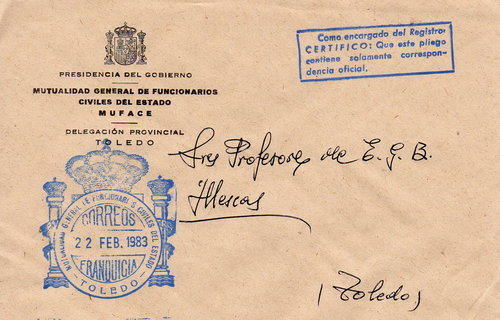 PRESIDENCIA DEL GOBIERNO
MUTUALIDAD GENERAL DE FUNCIONARIOS
CIVILES DEL ESTADO
MUFACE
DELEGACIÓN PROVINCIAL
TOLEDO
Como encargado del Registro:
CERTIFICO: Que este pliego
contiene solamente correspon-
dencia oficial.
Sres Profesores de E. G. B.
Illescas
(Toledo)
MUTUALIDAD GENERAL DE FUNCIONARIOS CIVILES DEL ESTADO
CORREOS
22 FEB. 1983
FRANQUICIA
-TOLEDO-